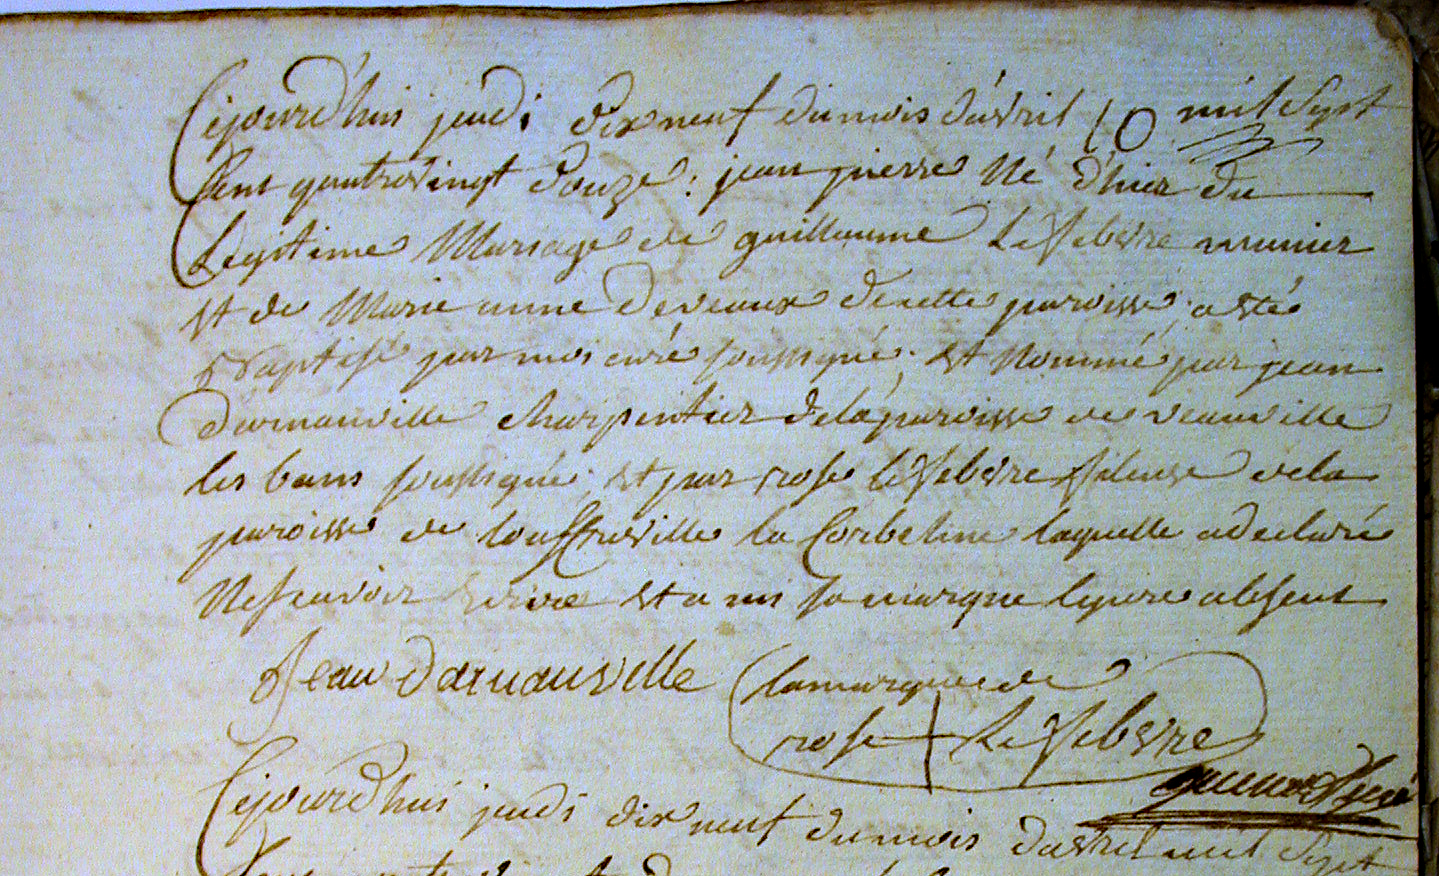 Cejourd'huis jeudi dix neuf du mois d'avril 10 mil sept
Cent quatrevingt douze: jean pierre Né d'hier du
Legitime Mariage de guillaume Le febvre munier
et de Marie anne Deveaux de cette paroisse a eté
Baptisé par moi curé soussigné. et Nommé par jean
Darnanville charpentier de la paroisse de veauville
les bans soussigné; et par rose le febvre fileuse de la
paroisse de touffreville la Corbeline laquelle a declaré
Ne scavoir Ecrire et a mis sa marque le pere absent
Jean Darnanville la marque de
rose Le febvre
Cejourd'hui jeudi dix neuf du mois d'avril mil sept